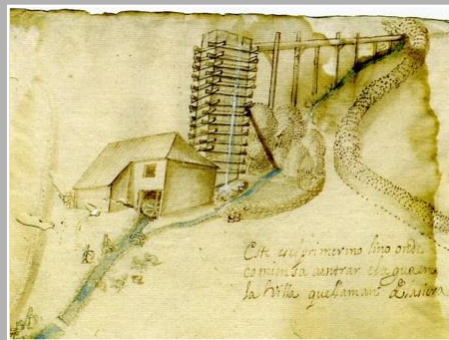 Este es el primer molino onde
comiensa a entrar el agua en
la Villa que llaman